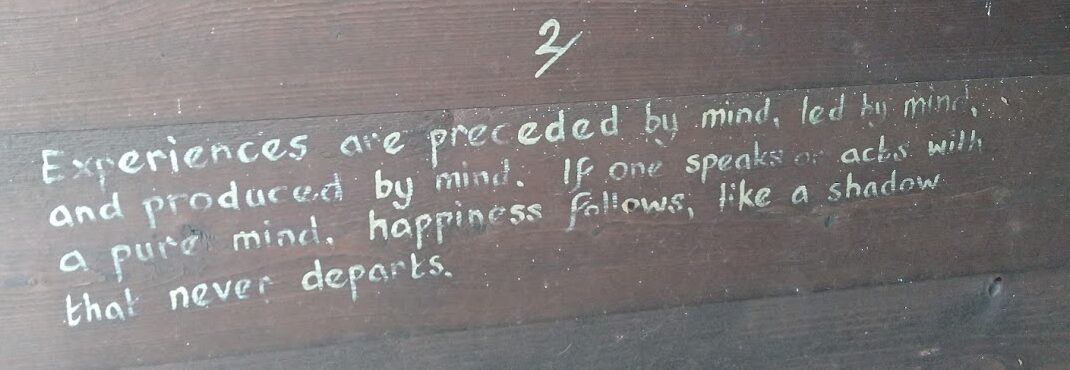 2
Experiences are preceded by mind, led by mind,
and produced by mind. If one speaks or acts with
a pure mind, happiness follows, like a shadow
that never departs.